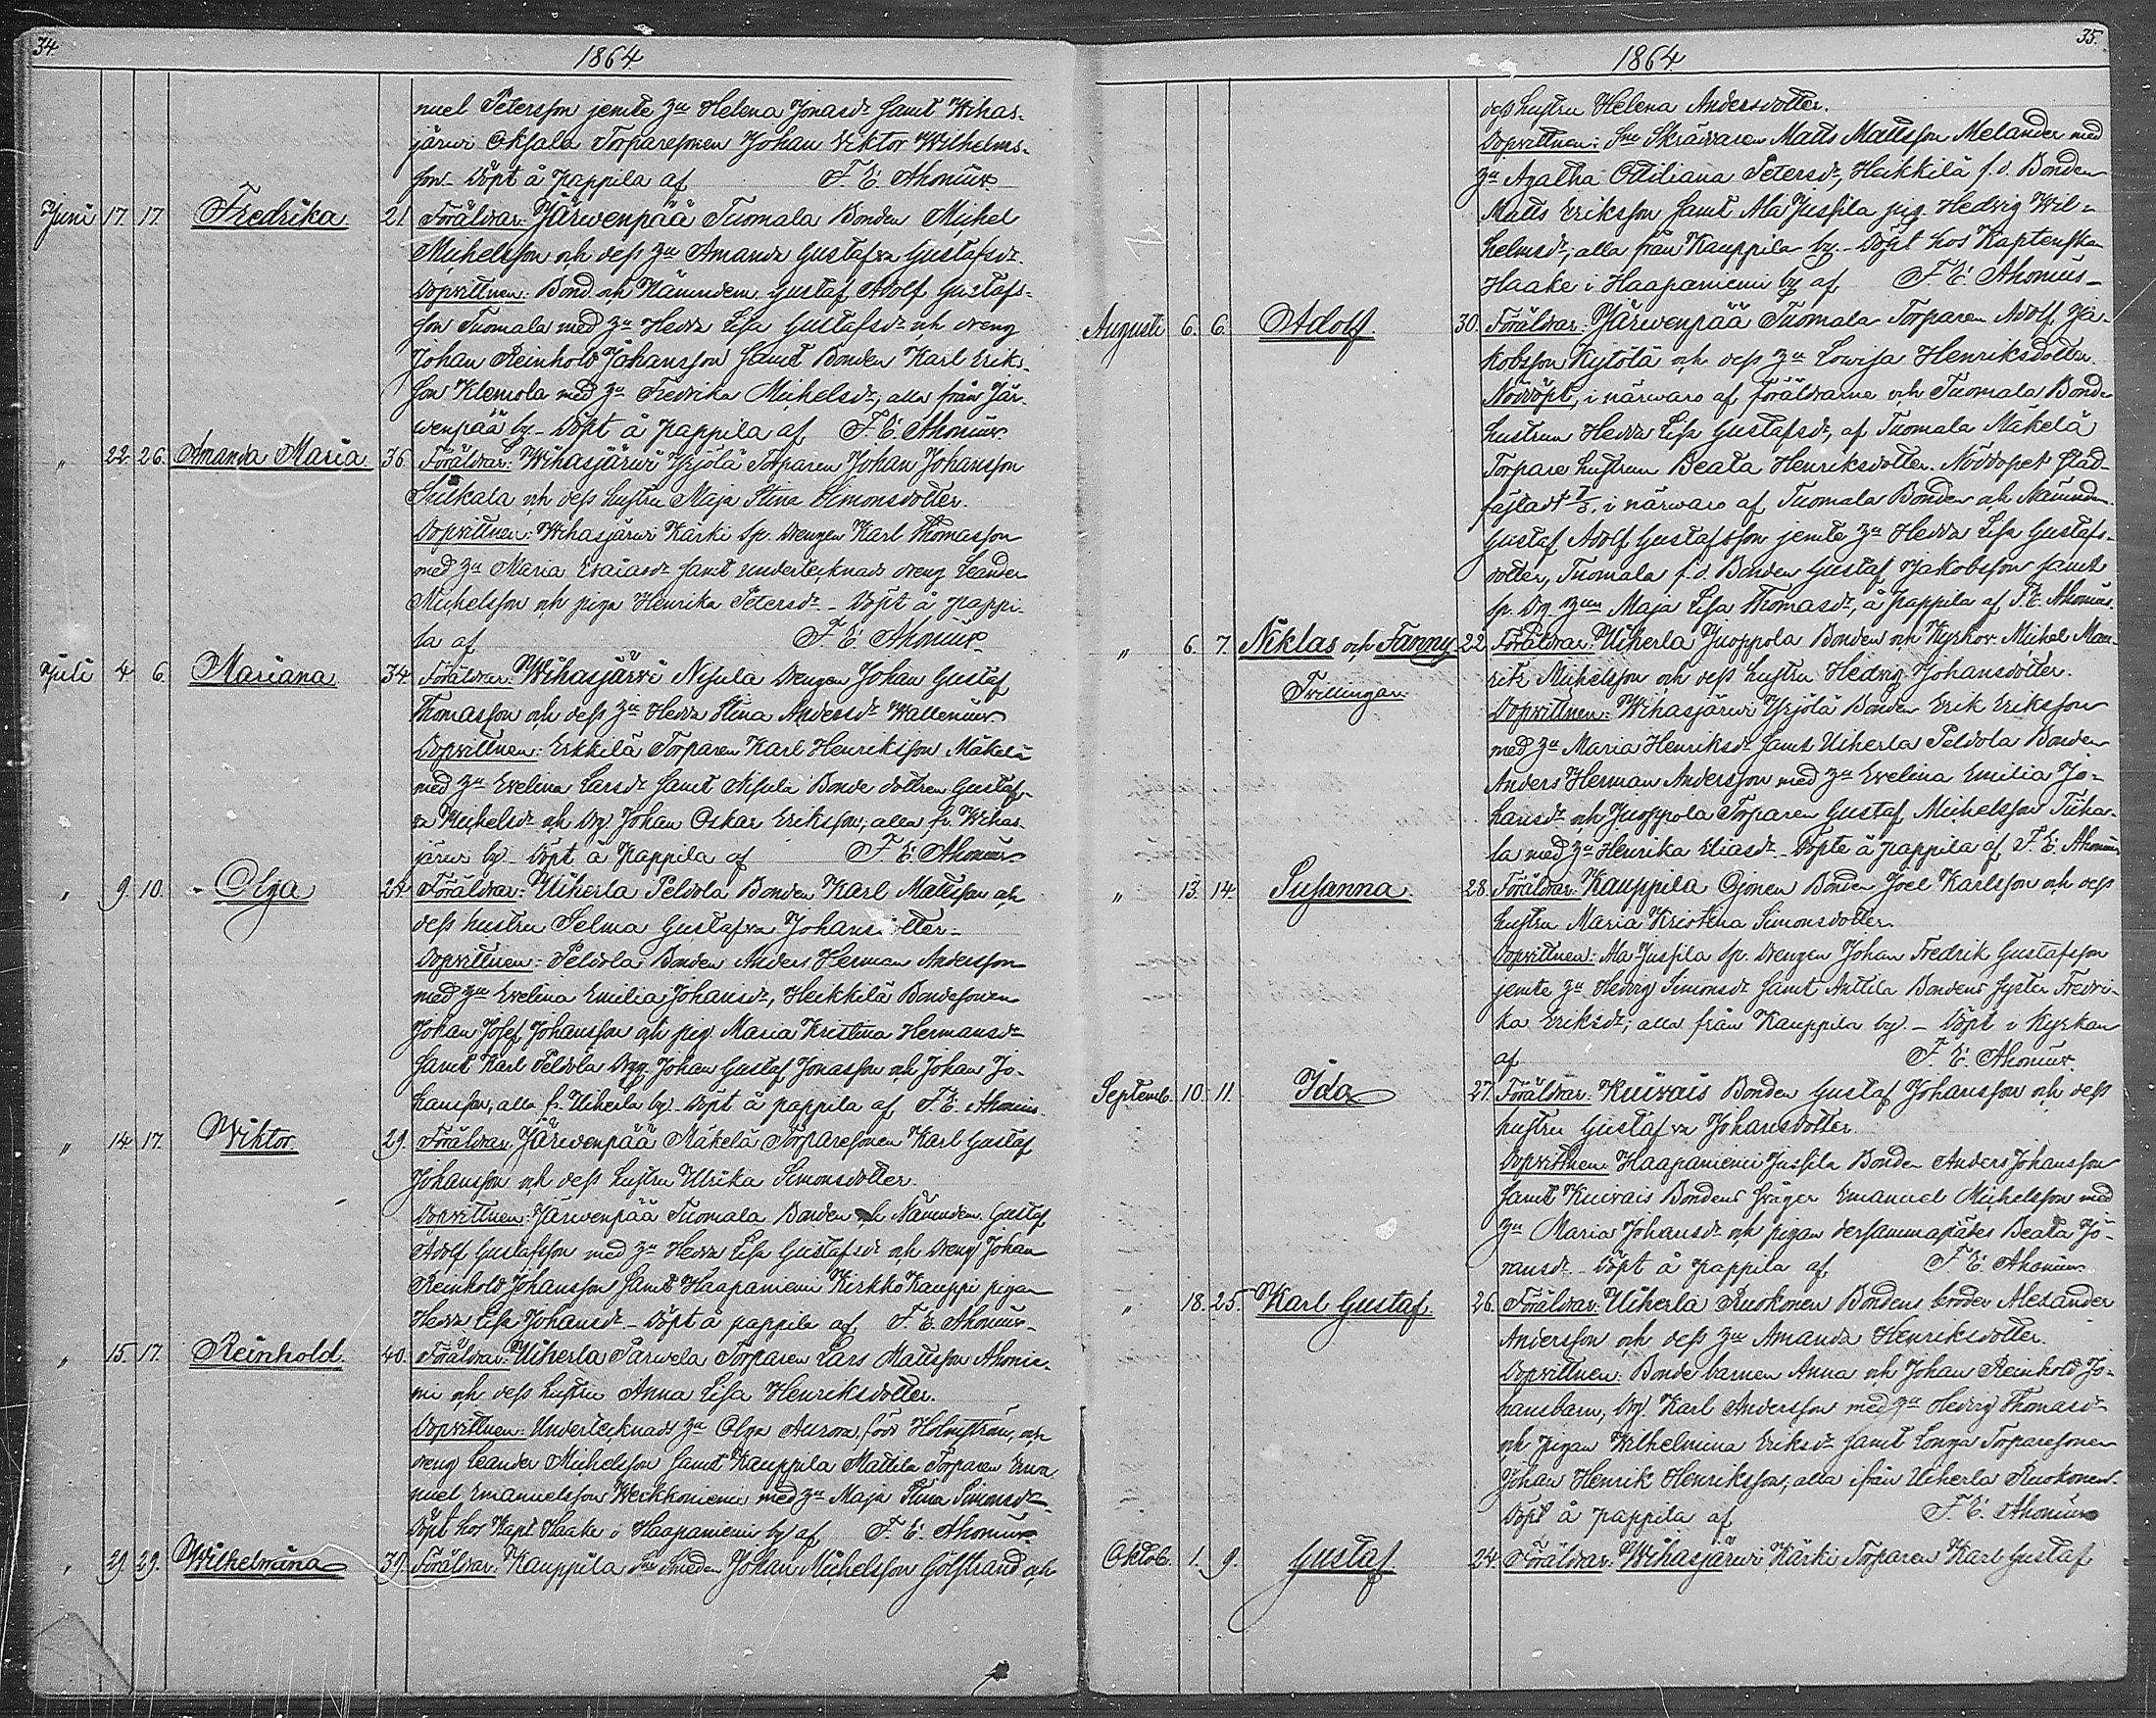 34.
1864.
nuel Petersson jemte hu Helena Jonasdr samt Wihas-
järwi Oksala Torparesonen Johan Viktor Wilhelms-
son. Döpt å pappila af F. E. Ahonius.
Juni 17. 17. Fredrika 21. Föräldrar: Järwenpää Tuomala Bonden Michel
Michelsson och dess hu Amanda Gustafva Gustafsdr.
Dopvittnen: Bond. och Nämndem. Gustaf Adolf Gustafs-
son Tuomala med hu Hedda Lisa Gustafsdr och dreng
Johan Reinhold Johansson samt Bonden Karl Eriks-
son Klemola med hu Fredrika Michelsdr, alla från Jär-
wenpää by. Döpt å pappila af F. E. Ahonius.
" 22. 26. Amanda Maria 36. Föräldrar: Wihasjärwi Yrjölä Torparen Johan Johansson
och dess hustru Maja Stina Simonsdotter.
Dopvittnen: Wihasjärwi Kärki Sp. Drengen Karl Thomasson
med hu Maria Esaiasdr samt undertecknads dreng Leander
Michelsson och piga Henrika Petersdr. Döpt å pappi-
la af F. E. Ahonius.
Juli 4 6. Mariana 34. Föräldrar: Wihasjärvi Nisula Drengen Johan Gustaf
Thomasson och dess hu Hedda Stina Andersdr Wallenius
Dopvittnen: Erkkilä Torparen Karl Henriksson Mäkelä
med hu Evelina Larsdr samt Nisula Bonde dottren Gustaf-
va Michelsdr och Drg Johan Oskar Eriksson, alla fr. Wihas-
järwi by. Döpt å Pappila af F. E. Ahonius
" 9. 10. Olga 24. Föräldrar: Uiherla Peldola Bonden Karl Mattsson och
dess hustru Selma Gustafva Johansdotter.
Dopvittnen: Peldola Bonden Anders Herman Andersson
med hu Evelina Emilia Johansdr, Heikkilä Bondesonen
Johan Josef Johansson och pig. Maria Kristina Hermansdr
samt Karl Peldola Drgg. Johan Gustaf Jonasson och Johan Jo-
hansson, alla fr. Uiherla by. Döpt å pappila af F. E. Ahonius.
" 14. 17. Wiktor. 29. Föräldrar: Järwenpää Mäkelä Torparesonen Karl Gustaf
Johansson och dess hustru Ulrika Simonsdotter.
Dopvittnen: Järwenpää Tuomala Bonden och Nämndem. Gustaf
Adolf Gustafsson med hu Hedda Lisa Gustafsdr och dreng Johan
Reinhold Johansson samt Haapaniemi Kirkko Kauppi pigan
Hedda Lisa Johansdr. Döpt å pappila af F. E. Ahonius.
" 15. 17. Reinhold. 40. Föräldrar: Uiherla Särwela Torparen Lars Mattsson Ahonie-
mi och dess hustru Anna Lisa Henriksdotter.
Dopvittnen: Undertecknads hu Olga Aurora, född Holmström, och
dreng Leander Michelsson samt Kauppila Mattila Torparen Ema-
nuel Emanuelsson Werkkoniemi med hu Maja Stina Simonsdr
Döpt hos Kapt. Haake i Haapaniemi by af F. E. Ahonius
" 29. 29. Wilhelmina 39. Föräldrar: Kauppila Sne Smeden Johan Michelsson Golfstrand och
35.
1864.
dess hustru Helena Andersdotter.
Dopvittnen: Sne Skräddaren Matts Mattsson Melander med
hu Agatha Ottiliana Petersdr, Heikkilä f. d. Bonden
Matts Eriksson samt Ala Jussila pig. Hedvig Wil-
helmsdr, alla från Kauppila by. Döpt hos Kaptenska
Haake i Haapaniemi by af F. E. Ahonius
Augusti 6. 6. Adolf. 30. Föräldrar: Järwenpää Tuomala Torparen Adolf Ja-
kobsson Kytölä och dess hu Lovisa Henriksdotter.
Nöddöpt, i närwaro af föräldrarne och Tuomala Bonde
hustrun Hedda Lisa Gustafsdr, af Tuomala Mäkelä
Torpare hustrun Beata Henriksdotter. Nöddopet stad-
fästadt 7/8, i närwaro af Tuomala Bonden och Nämndem.
Gustaf Adolf Gustafsson jemte hu Hedda Lisa Gustafs-
dotter, Tuomala f. d. Bonden Gustaf Jakobsson samt
sp. Drg hun Maja Lisa Thomasdr, å pappila af F. E. Ahonius.
" 6. 7. Niklas och Fanny 22. Föräldrar: Uiherla Juoppola Bonden och Kyrkov. Michel Mau-
Tvillingar. ritz Michelsson och dess hustru Hedvig Johansdotter.
Dopvittnen: Wihasjärwi Yrjölä Bonden Erik Eriksson
med hu Maria Henriksdr samt Uiherla Peldola Bonden
Anders Herman Andersson med hu Evelina Emilia Jo-
hansdr och Juoppola Torparen Gustaf Michelsson
la med hu Henrika Eliasdr. Döpte å pappila af F. E. Ahonius
" 13. 14. Susanna. 28. Föräldrar: Kauppila Ojonen Bonden Joel Karlsson och dess
hustru Maria Kristina Simonsdotter.
Dopvittnen: Ala-Jussila Sp. Drengen Johan Fredrik Gustafsson
jemte hu Hedvig Simonsdr samt Anttila Bondens syster Fredri-
ka Eriksdr; alla från Kauppila by. Döpt i Kyrkan
af F. E. Ahonius.
Septemb. 10. 11. Ida 27. Föräldrar: Kuivais Bonden Gustaf Johansson och dess
hustru Gustafva Johansdotter.
Dopvittnen: Haapaniemi Jussila Bonden Anders Johansson
samt Kuivais Bondens svåger Emanuel Michelsson med
hu Maria Johansdr och pigan dersammastädes Beata Jo-
ransdr. Döpt å pappila af F. E. Ahonius.
" 18. 25. Karl Gustaf. 26. Föräldrar: Uiherla Ruokonen Bondens broder Alexander
Andersson och dess hu Amanda Henriksdotter.
Dopvittnen: Bonde barnen Anna och Johan Reinhold Jo-
hansbarn, Drg. Karl Andersson med hu Hedvig Thomasdr
och pigan Wilhelmina Eriksdr samt Torparesonen
Johan Henrik Henriksson, alla ifrån Uiherla Ruokonen.
Döpt å pappila af F. E. Ahonius
Oktob. 1. 9. Gustaf. 24. Föräldrar: Wihasjärwi Kärki Torparen Karl Gustaf